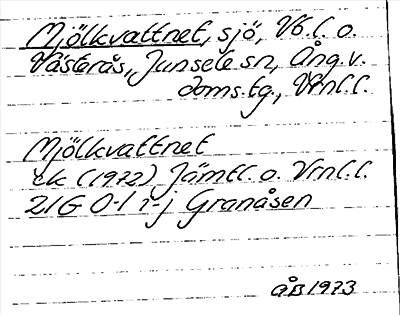 Mjölkvattnet, sjö, Vb.l. o.
Västerås, Junsele sn, Ång. v.
doms.tg., Vrnl.l.
Mjölkvattnet
ek (1972) Jämtl. o. Vrnl.l.
21G 0-1 i-j Granåsen
ÅB 1973